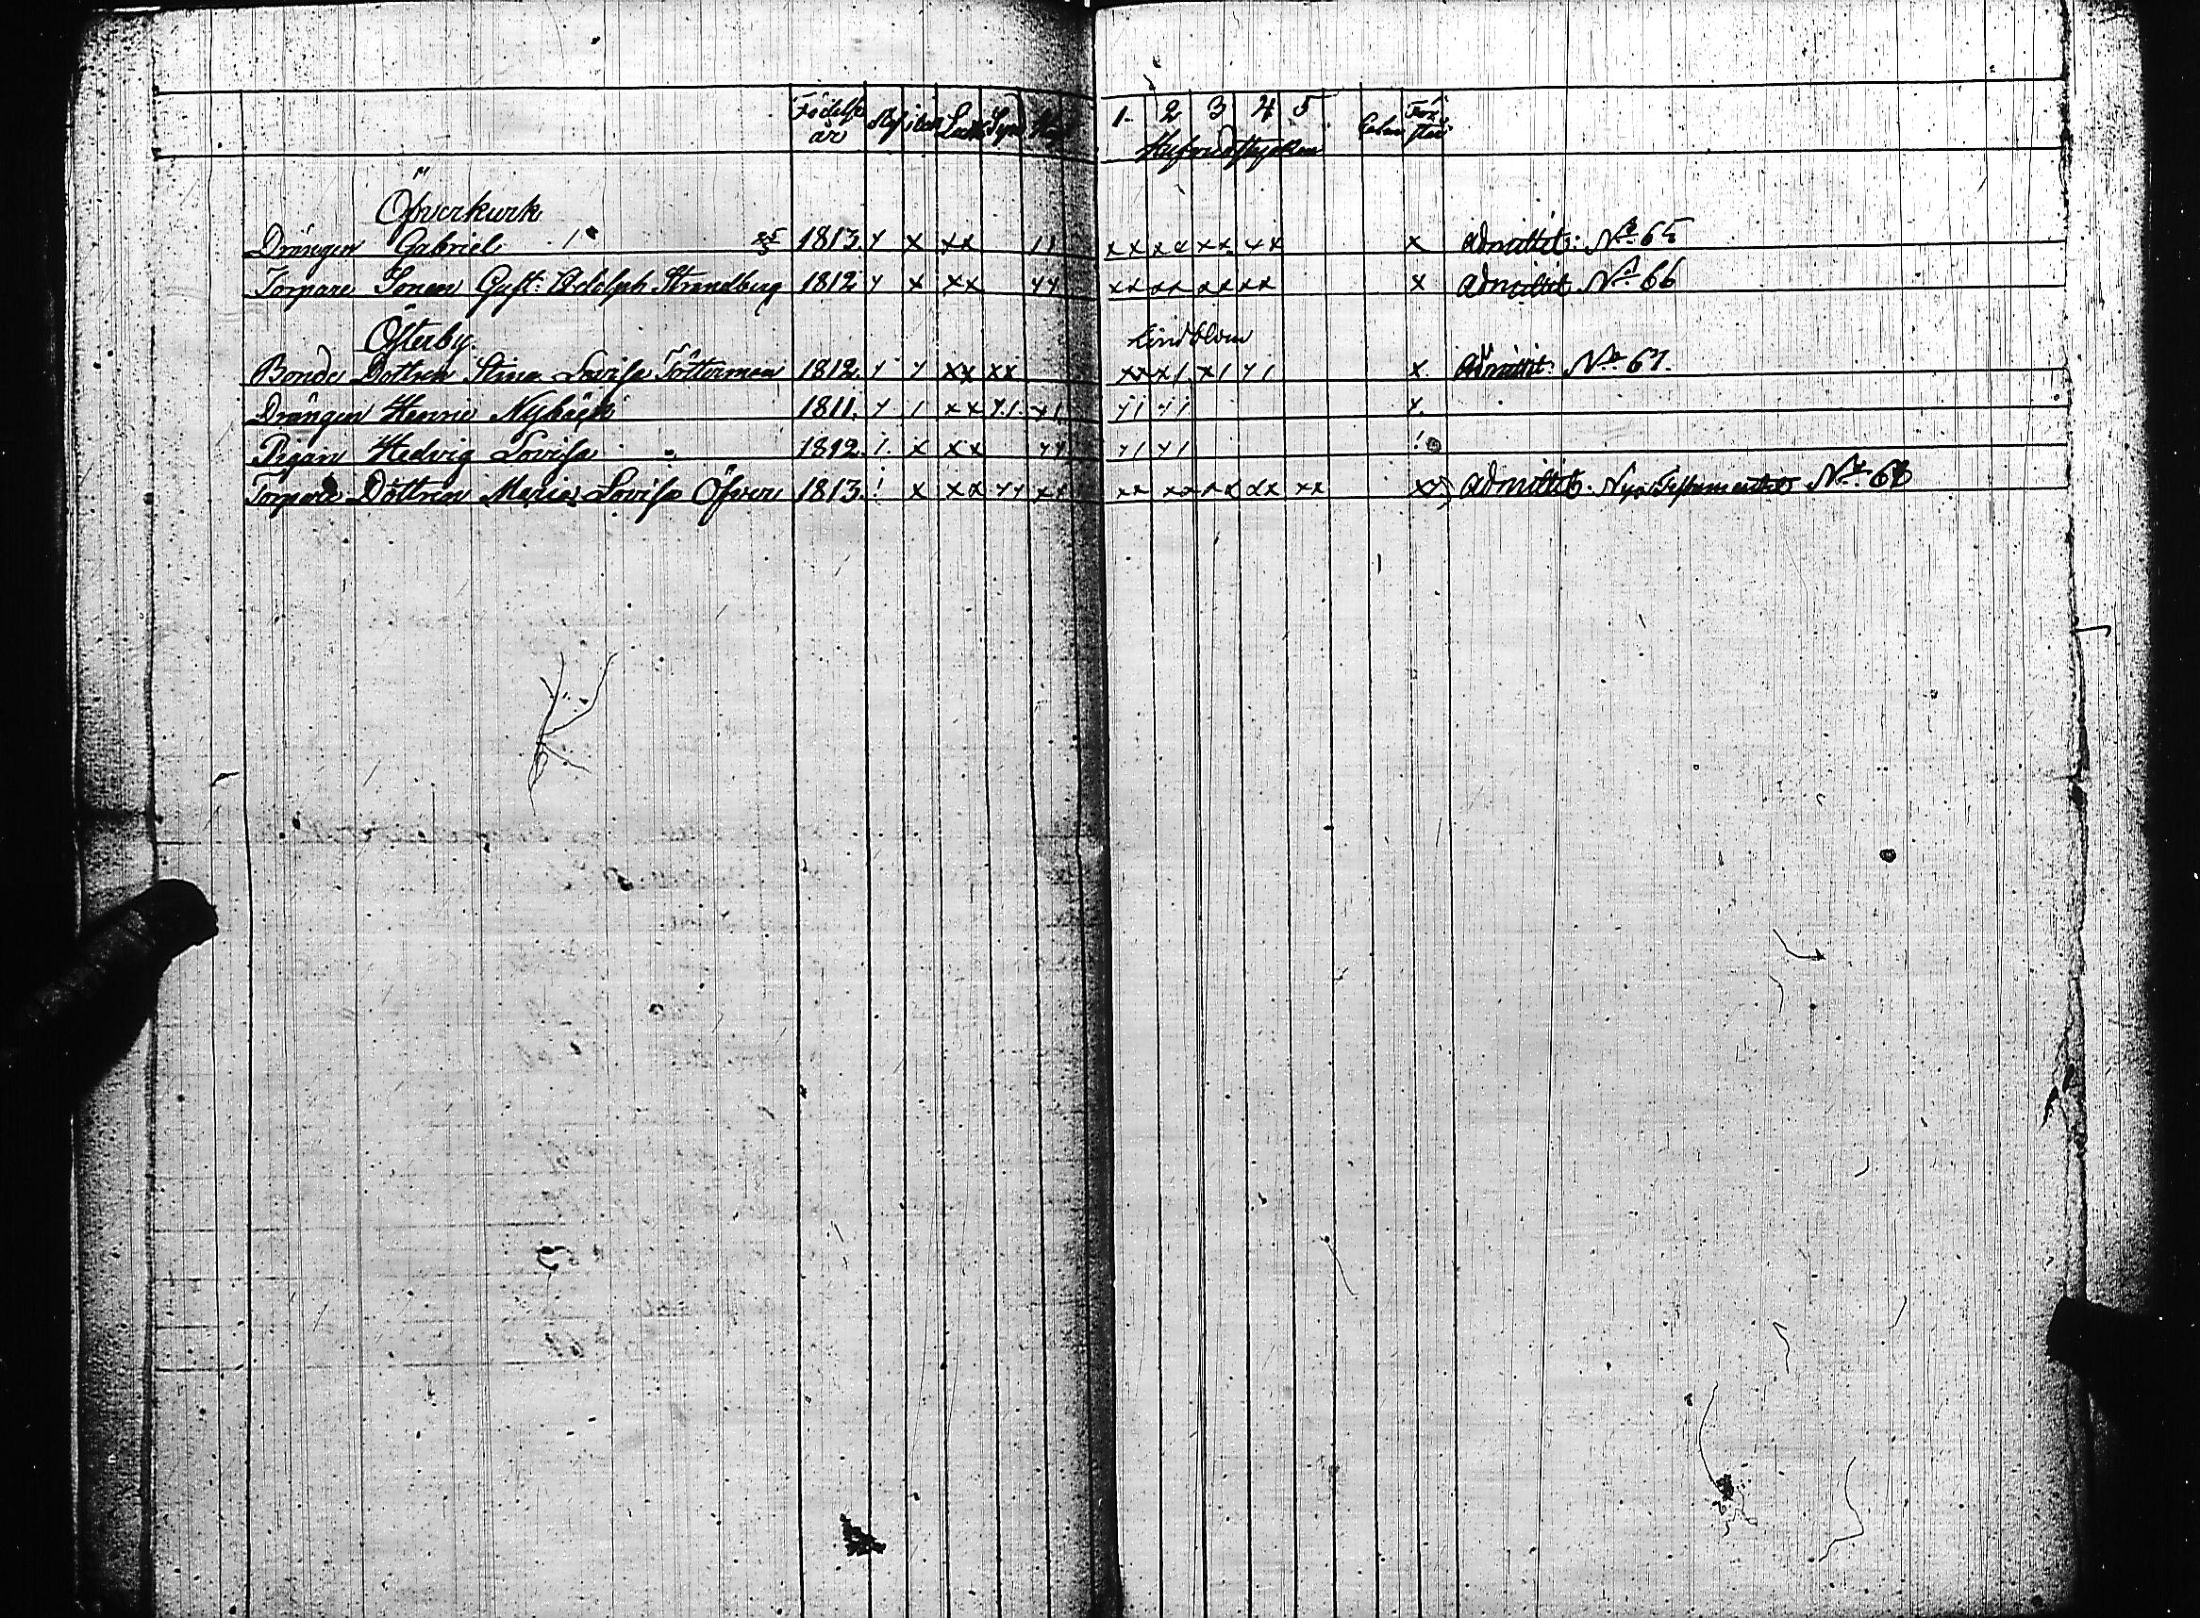 Födelse år 1. 2 3 4 5 För
Hufvudstycken
Öfverkurk
Drängen Gabriel 1813 y x xx 11 xx xx xx xx x admittit: No 65
Torpare Sonen Gust: Adolph Strandberg 1812 y x xx yy xx xx xx xx x admittit No 66
Österby. Lindblom
Bonde Dottren Stina Lovisa Tötterman 1812 y y xx xx xx x1 x1 y1 x admittit: No 67.
Drängen Henric Nybäck 1811. y 1 xx y1. y1 y1 y1 y.
Pigan Hedvig Lovisa 1812. 1. x xx yy y1 y1 !
Torpare Dottren Maria Lovisa Öfver 1813. ! x xx yy xx xx xx xx xx xx x admittit. Nya Testamentet No 68